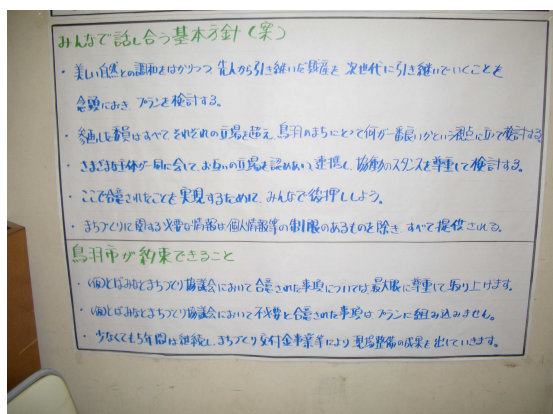 みんなで話し合う基本方針(案)
・美しい自然との調和をはかりつつ 先人から引き継いだ財産を 次世代に引き継いでいくことを
念頭におき プランを検討する。
・参画した委員はすべて それぞれの立場を超え、鳥羽のまちにとって何が一番良いかという視点に立って検討する。
・さまざまな主体が一同に会して、お互いの立場を認めあい、連携し、協働のスタンスを尊重して検討する。
・ここで合意されたことを実現するために、みんなで後押ししよう。
・まちづくりに関する必要な情報は個人情報等の制限のあるものを除き すべて提供される。
鳥羽市が約束できること
・(仮)とばみなとまちづくり協議会において合意された事項については、最大限に尊重して取り上げます。
・(仮)とばみなとまちづくり協議会において不必要と合意された事項はプランに組み込みません。
・少なくても5年間は継続し、まちづくり交付金事業等により現場整備の成果を出していきます。